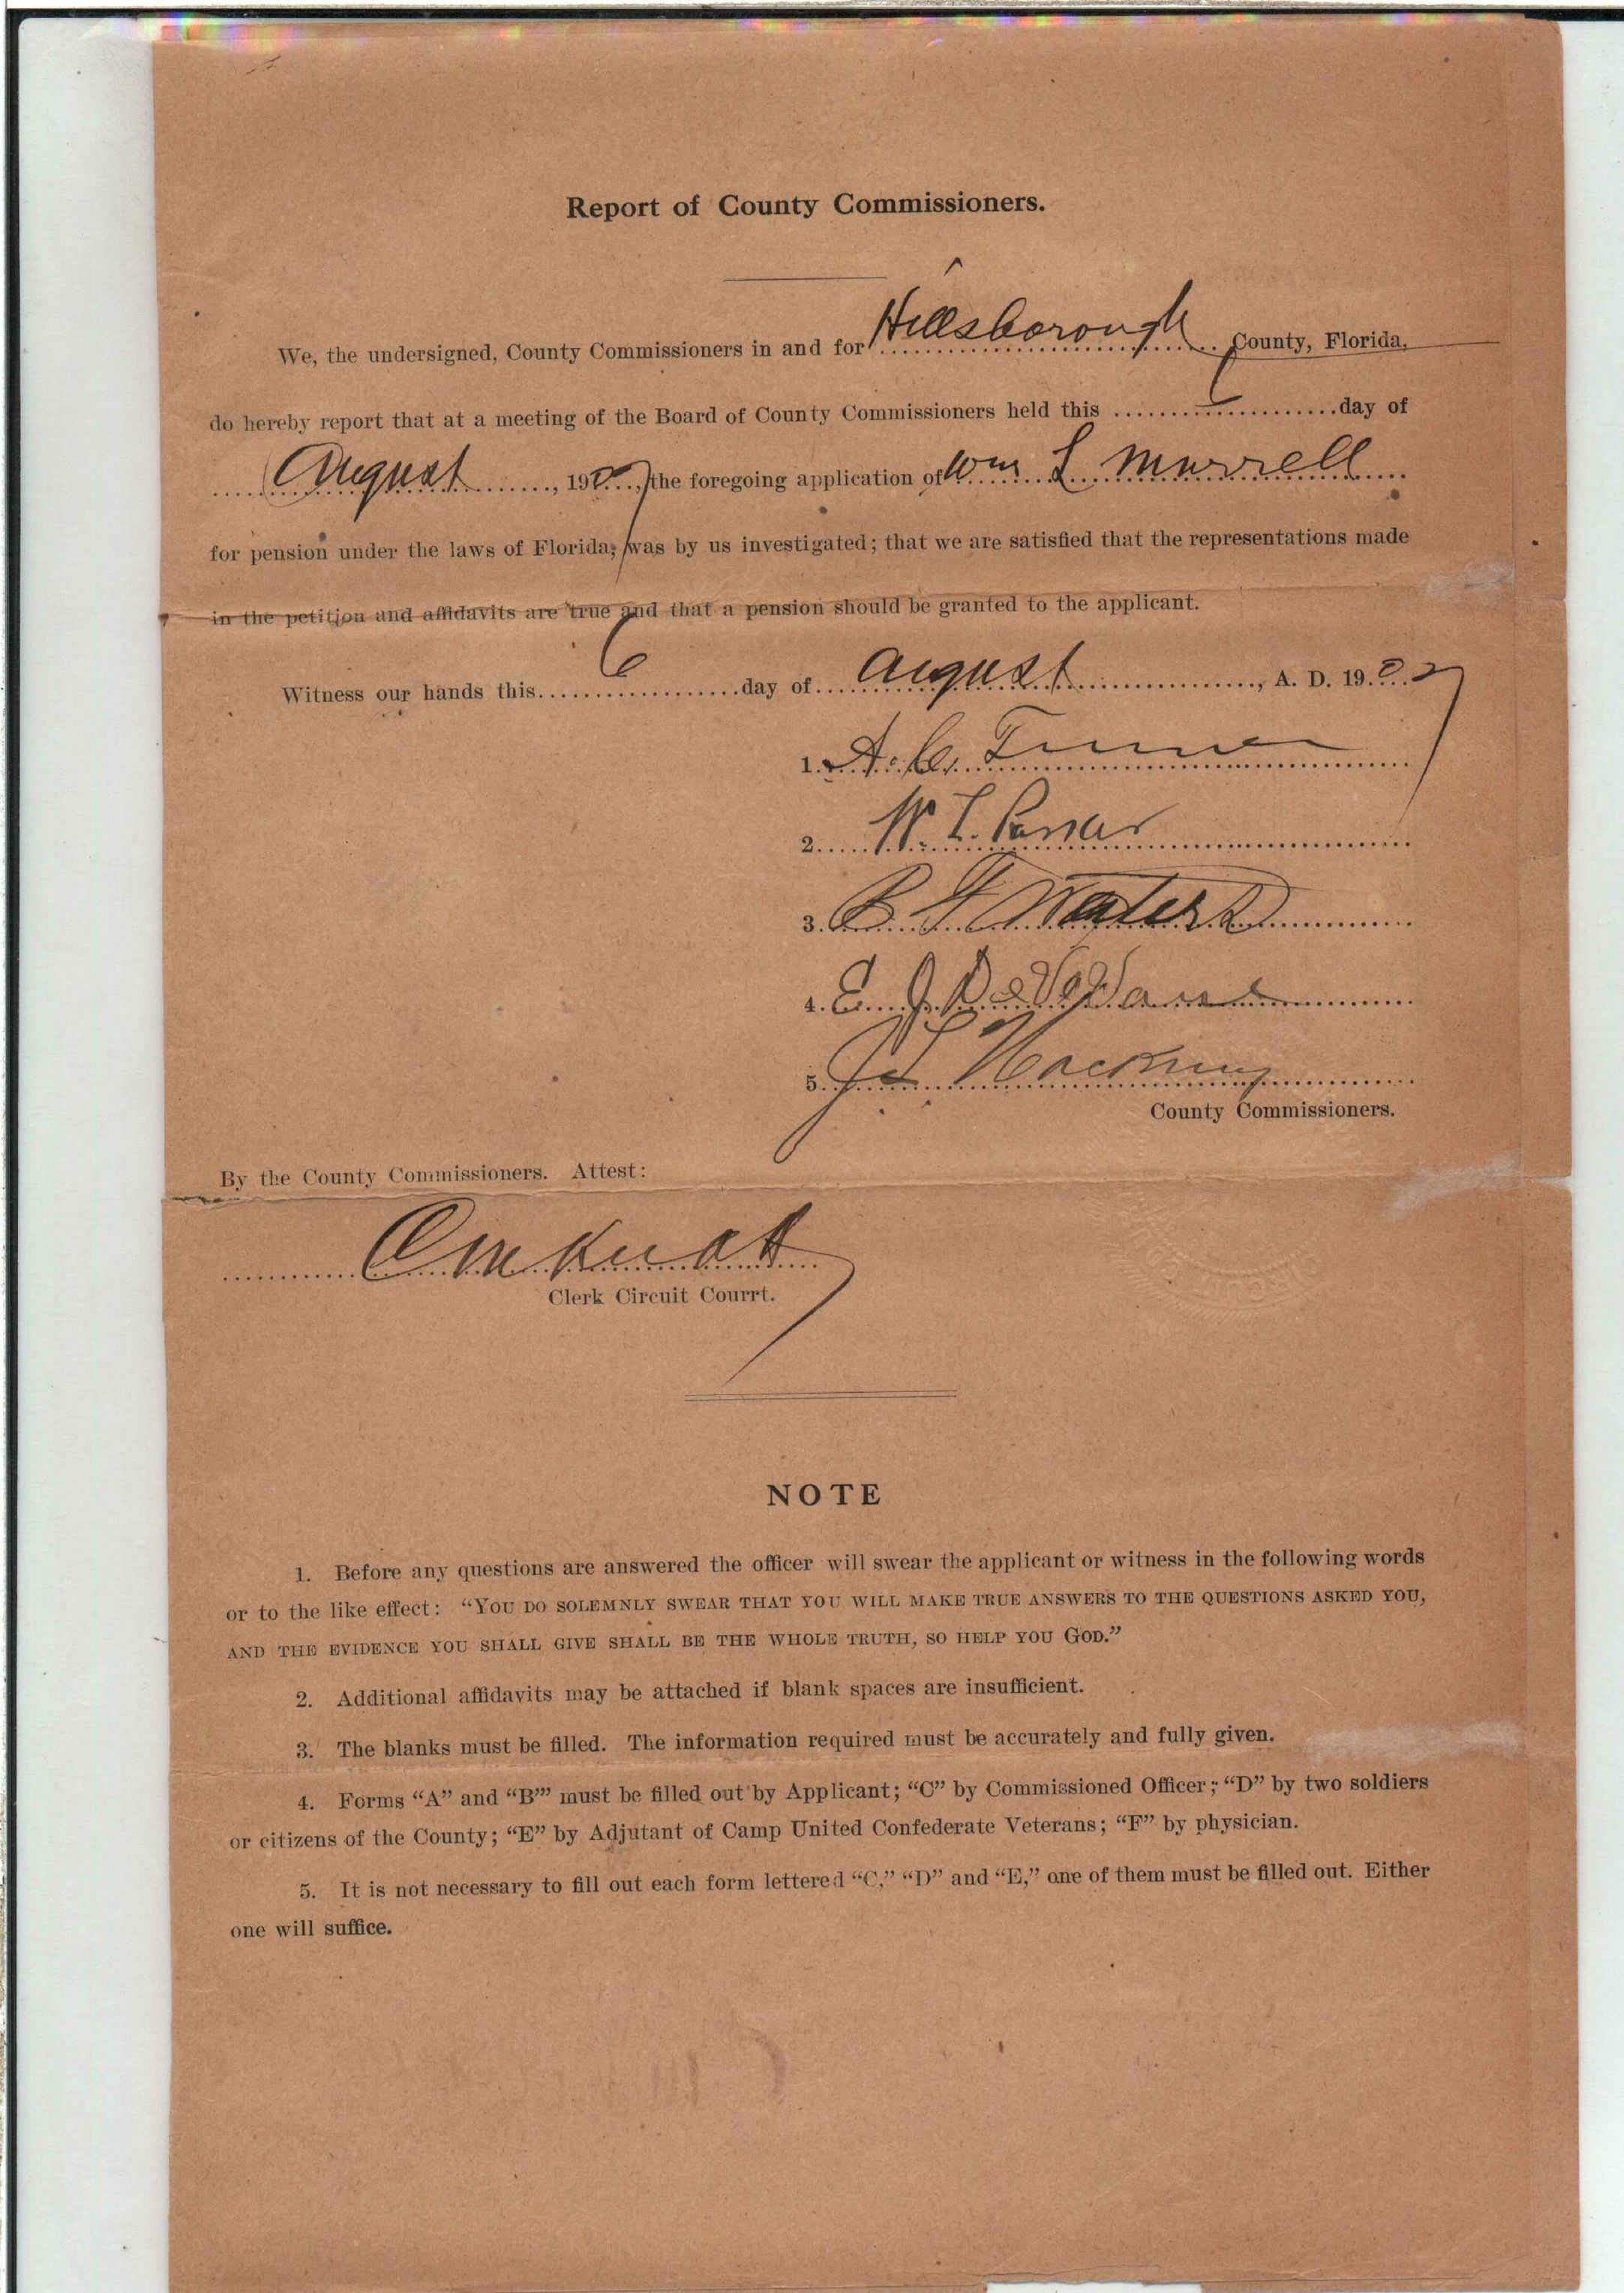 Report of County Commissioners.
We, the undersigned, County Commissioners in and for Hillsborough County, Florida,
do hereby report that at a meeting of the Board of County Commissioners held this 6 day of
August, 1907, the foregoing application of Wm L Murrell
for pension under the laws of Florida, was by us investigated; that we are satisfied that the representations made
in the petition and affidavits are true and that a pension should be granted to the applicant.
Witness our hands this 6 day of August, A. D. 1907
1. A. C.
2. W. T.
3. B F Waters
4. E. J.
5.
County Commissioners.
By the County Commissioners. Attest:
Clerk Circuit Courrt.
NOTE
1. Before any questions are answered the officer will swear the applicant or witness in the following words
or to the like effect: “YOU DO SOLEMNLY SWEAR THAT YOU WILL MAKE TRUE ANSWERS TO THE QUESTIONS ASKED YOU,
AND THE EVIDENCE YOU SHALL GIVE SHALL BE THE WHOLE TRUTH, SO HELP YOU GOD.”
2. Additional affidavits may be attached if blank spaces are insufficient.
3. The blanks must be filled. The information required must be accurately and fully given.
4. Forms “A” and “B’” must be filled out by Applicant; “C” by Commissioned Officer; “D” by two soldiers
or citizens of the County; “E” by Adjutant of Camp United Confederate Veterans; “F” by physician.
5. It is not necessary to fill out each form lettered “C,” “D” and “E,” one of them must be filled out. Either
one will suffice.